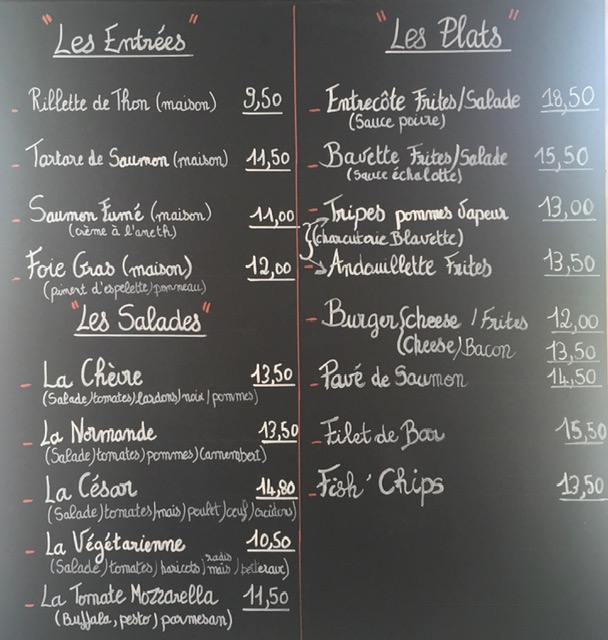 "Les Entrées"
- Rillette de Thon (maison) 9,50
- Tartare de Saumon (maison) 11,50
- Saumon Fumé (maison) 11,00
(crème à l'aneth)
- Foie Gras (maison) 12,00
(piment d'espelette/pommeau)
"Les Salades"
- La Chèvre 13,50
(Salade/tomates/lardons/noix/pommes)
- La Normande 13,50
(Salade/tomates/pommes/camembert)
- La César 14,80
(Salade/tomates/maïs/poulet/oeuf/croûtons)
- La Végétarienne 10,50
(Salade/tomates/haricots/radis/maïs/betterave)
- La Tomate Mozzarella 11,50
(Buffala, pesto/parmesan)
"Les Plats"
- Entrecôte Frites/Salade 18,50
(Sauce poivre)
- Bavette Frites/Salade 15,50
(Sauce échalotte)
- Tripes pommes Vapeur 13,00
(charcuterie Blavette)
- Andouillette Frites 13,50
- Burger/cheese / Frites 12,00
(Cheese/Bacon 13,50
- Pavé de Saumon 14,50
- Filet de Bar 15,50
- Fish' Chips 13,50